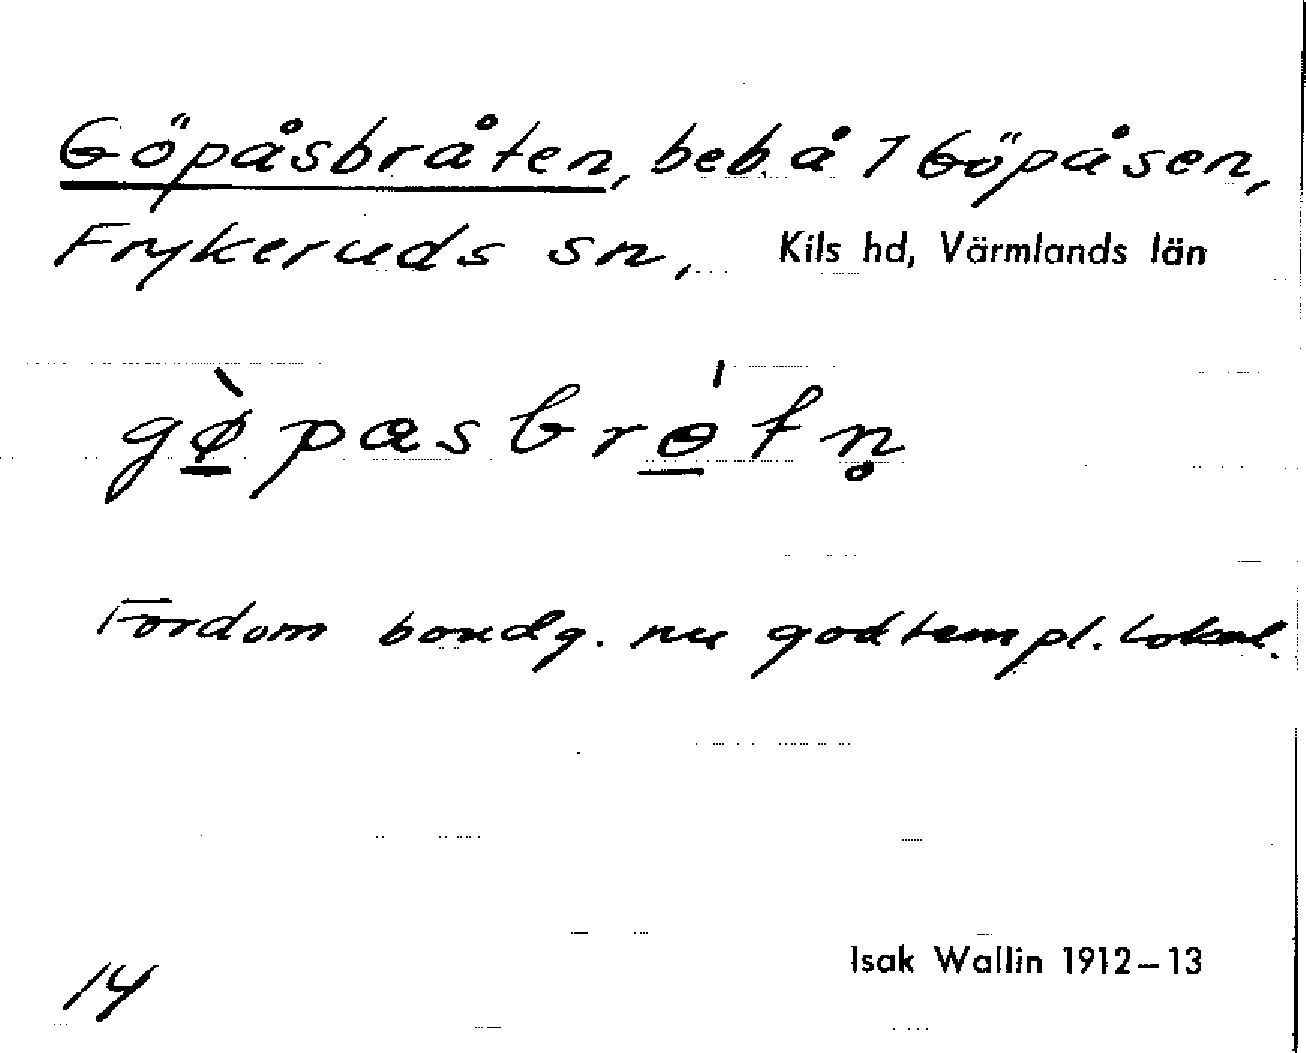 Göpåsbråten, beb. å 1 Göpåsen,
Frykeruds sn, Kils hd, Värmlands län
gø̠̀pasbrɵ̠́tn̥
Fordom bondg. nu godtempl. lokal.
Isak Wallin 1912–13
14